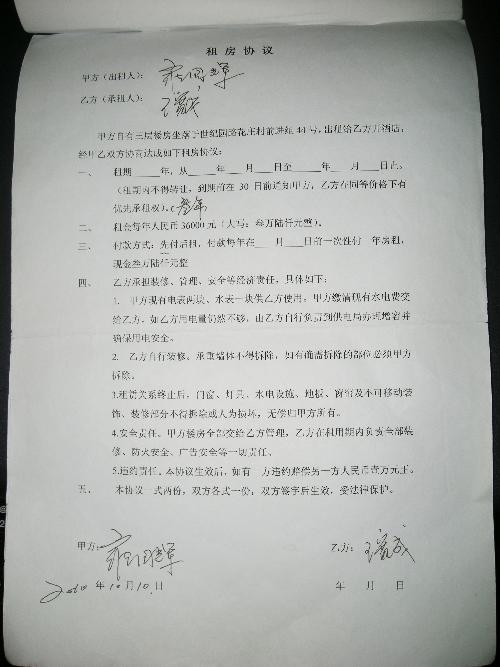 租房协议
甲方（出租人）：
乙方（承租人）：
甲方自有三层楼房坐落于世纪园路花庄村前进组44号，出租给乙方开酒店，
经甲乙双方协商达成如下租房协议：
一、 租期 年，从 年 月 日至 年 月 日止。
（租期内不得转让，到期前在30日前通知甲方，乙方在同等价格下有
优先承租权）。（叁年
二、 租金每年人民币36000元（大写：叁万陆仟元整）。
三、 付款方式：先付后租，付款每年在 月 日前一次性付一年房租，
现金叁万陆仟元整
四、 乙方承担装修、管理、安全等经济责任，具体如下：
1. 甲方现有电表两块、水表一块供乙方使用，甲方缴清现有水电费交
给乙方，如乙方用电量仍然不够，由乙方自行负责到供电局办理增容并
确保用电安全。
2. 乙方自行装修。承重墙体不得拆除，如有确需拆除的部位必须甲方
拆除。
3.租赁关系终止后，门窗、灯具、水电设施、地板、窗帘及不可移动装
饰、装修部分不得拆除或人为损坏，无偿归甲方所有。
4.安全责任。甲方楼房全部交给乙方管理，乙方在租用期内负责全部装
修、防火安全、广告安全等一切责任。
5.违约责任。本协议生效后，如有一方违约赔偿另一方人民币壹万元正。
五、 本协议一式两份，双方各式一份，双方签字后生效，受法律保护。
甲方：
乙方：
2010年10月10日
年 月 日